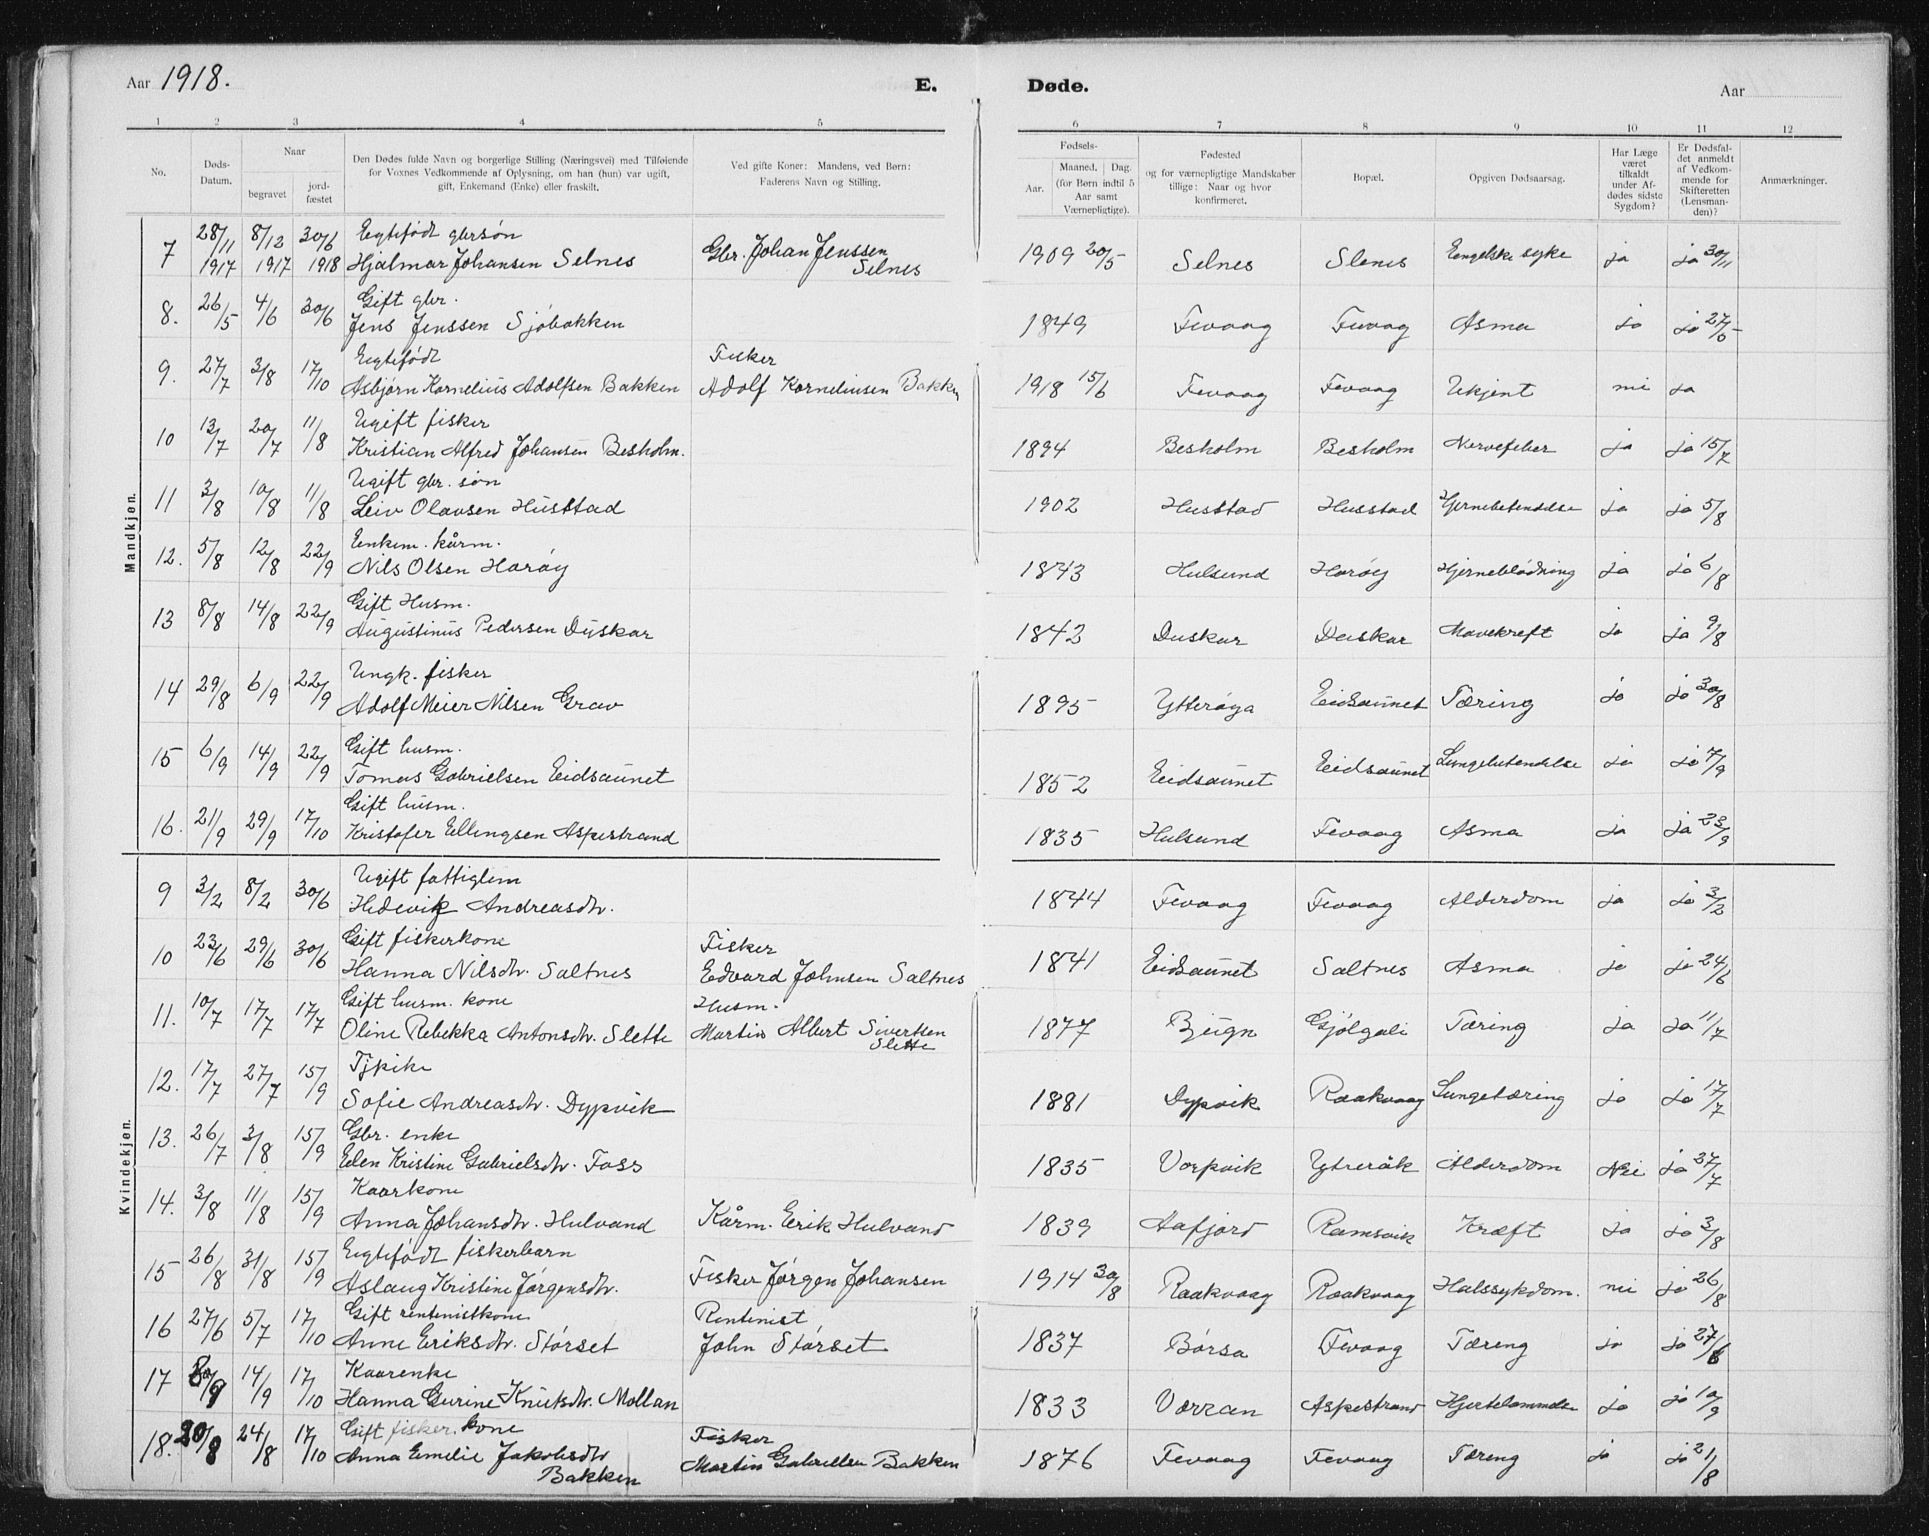 Aar 1918.
E.
Døde.
Aar
1 2 3 4 5 6 7 8 9 10 11 12
No.
Døds-Datum.
Naar
begravet
jord-fæstet
Den Dødes fulde Navn og borgerlige Stilling (Næringsvei) med Tilføiende
for Voxnes Vedkommende af Oplysning, om han (hun) var ugift,
gift, Enkemand (Enke) eller fraskilt.
Ved gifte Koner: Mandens, ved Børn:
Faderens Navn og Stilling.
Fødsels-
Aar.
Maaned. Dag.
(for Børn indtil 5
Aar samt
Værnepligtige).
Fødested
og for værnepligtige Mandskaber
tillige: Naar og hvor
konfirmeret.
Bopæl.
Opgiven Dødsaarsag.
Har Læge
været
tilkaldt
under Af-
dødes sidste
Sygdom?
Er Dødsfal-
det anmeldt
af Vedkom-
mende for
Skifteretten
(Lensman-
den)?
Anmærkninger.
Mandkjøn.
7 28/11 1917 8/12 1917 30/6 1918 Egtefødt gbrsøn
Hjalmar Johansen Selnes Gbr. Johan Jenssen Selnes 1909 20/5 Selnes Slenes Engelske syke ja ja 30/11
8. 26/5 4/6 30/6 Gift gbr.
Jens Jenssen Sjöbakken 1849 Fevaag Fevaag Asma ja ja 27/5
9. 27/7 3/8 17/10 Egtefødt Fisker
Asbjørn Kornelius Adolfsen Bakken Adolf Korneliusen Bakken 1918 15/6 Fevaag Fevaag Ukjent nei ja
10 13/7 20/7 11/8 Ugift fisker
Kristian Alfred Johansen Besholm. 1894 Besholm Besholm Nervefeber ja ja 15/7
11 3/8 10/8 11/8 Ugift gbr. søn
Leiv Olavsen Husstad 1902 Husstad Husstad Hjernebetendelse ja ja 5/8
12. 5/8 12/8 22/9 Enkem. kårm.
Nils Olsen Harøy 1843 Hulsund Harøy Hjerneblødning ja ja 6/8
13 8/8 14/8 22/9 Gift Husm.
Augustinus Pedersen Duskar 1842 Duskar Duskar Mavekreft ja ja 9/8
14 29/8 6/9 22/9 Ungk. fisker
Adolf Meier Nilsen Grav 1895 Ytterøya Eidsaunet Tæring ja ja 30/8
15 6/9 14/9 22/9 Gift husm.
Tomas Gabrielsen Eidsaunet 1852 Eidsaunet Eidsaunet Lungebetendelse ja ja 7/9
16. 21/9 29/9 17/10 Gift husm.
Kristofer Ellingsen Aspestrand 1835 Hulsund Fevaag Asma ja ja 23/9
Kvindekjøn.
9 3/2 8/2 30/6 Ugift fattiglem
Hedevik Andreasdtr. 1844 Fevaag Fevaag Alderdom ja ja 3/2
10 23/6 29/6 30/6 Gift fiskerkone Fisker
Hanna Nilsdtr. Saltnes Edvard Johnsen Saltnes 1841 Eidsaunet Saltnes Asma ja ja 24/6
11. 10/7 17/7 17/7 Gift husm. kone Husm.
Oline Rebekka Antonsdtr. Slette Martin Albert Sivertsen Slette 1877 Bjugn Gjølgali Tæring ja ja 11/7
12. 17/7 27/7 15/9 Tjpike
Sofie Andreasdtr. Dypvik 1881 Dypvik Raakvaag Lungetæring ja ja 17/7
13. 26/7 3/8 15/9 Gbr. enke
Elen Kristine Gabrielsdtr. Foss 1835 Vorpvik Ytreråk Alderdom Nei ja 27/7
14. 3/8 11/8 15/9 Kaarkone
Anna Johansdtr. Hulvand Kårm. Erik Hulvand 1839 Aafjord Ramsvik Kræft ja ja 3/8
15 26/8 31/8 15/9 Egtefødt fiskerbarn
Aslaug Kristine Jørgensdtr. Fisker Jørgen Johansen 1914 30/8 Raakvaag Raakvaag Halssykdom. nei ja 26/8
16 27/6 5/7 17/10 Gift rentenistkone Rentenist
Anne Eriksdtr. Størset John Størset 1837 Børsa Fevaag Tæreng ja ja 27/6
17 14/9 17/10 Kaarenke
Hanna Gurine Knutsdtr. Mollan 1833 Verran Aspestrand Hjertelammelse ja ja 10/9
18. 20/8 24/8 17/10 Gift fisker. kone Fisker
Anna Emelie Jakobsdtr Bakken Martin Gabrielsen Bakken 1876 Fevaag Fevaag Tæreng ja ja 21/8